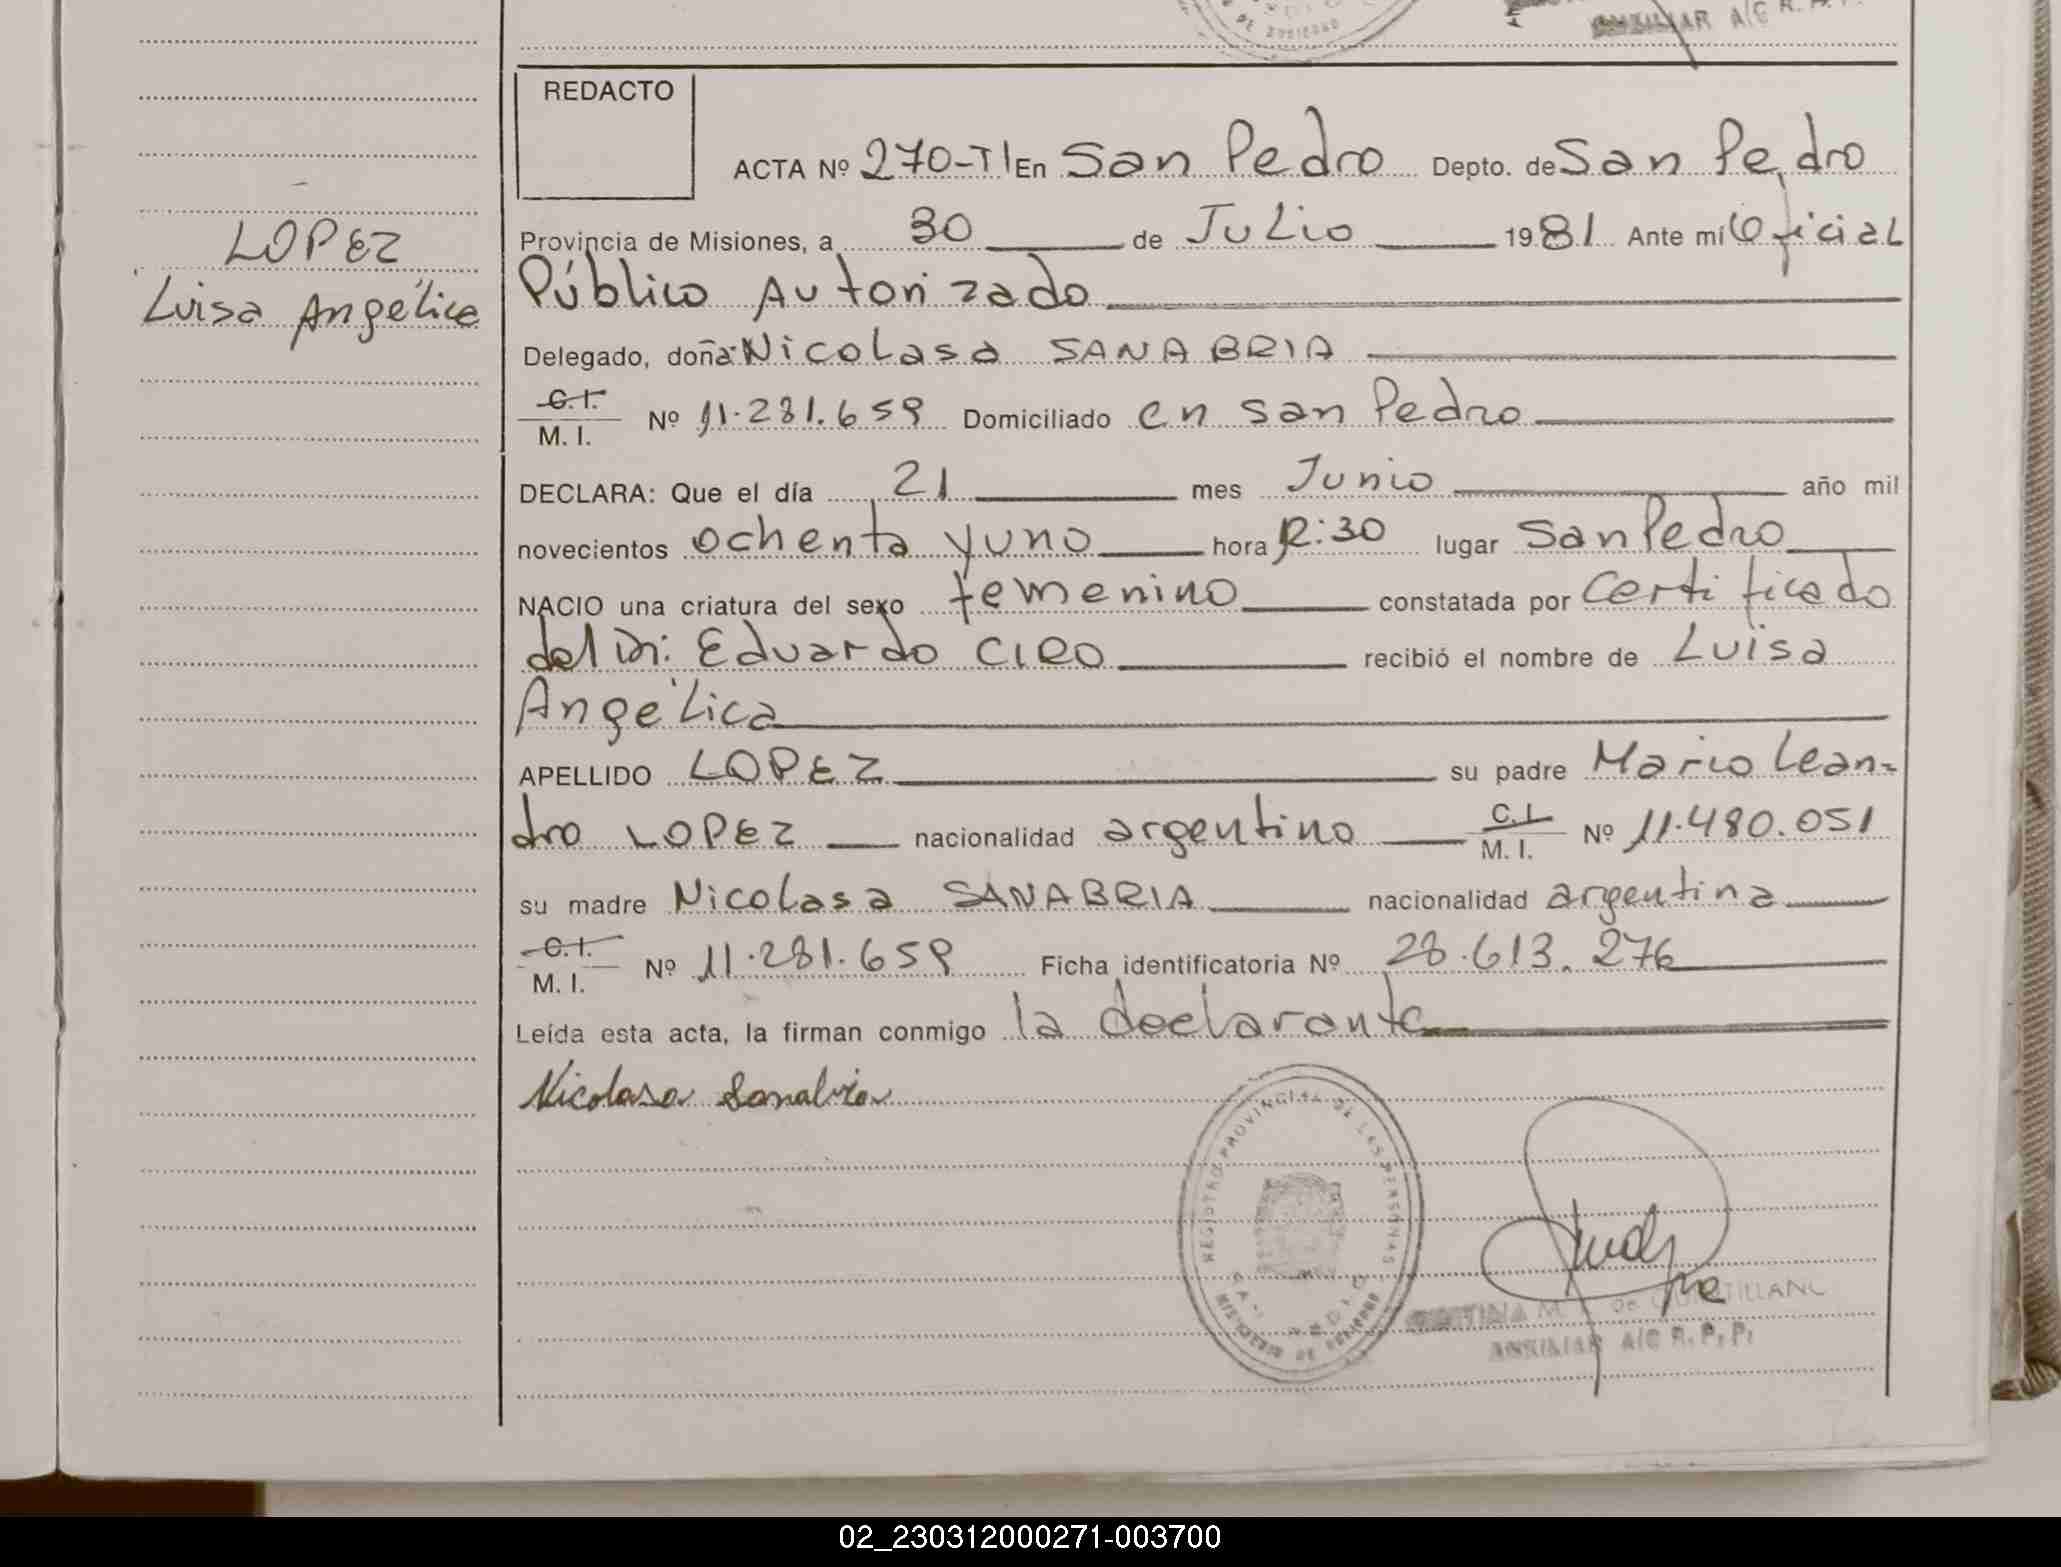 AUXILIAR A/C R. P. P.
REDACTO
ACTA Nº 270-TI En San Pedro Depto. de San Pedro
Provincia de Misiones, a 30 de Julio 1981 Ante mi Oficial
LOPEZ
Público Autorizado
Luisa Angélica
Delegado, doña Nicolasa SANABRIA
C.I.
M. I. Nº 11.281.659 Domiciliado en San Pedro
DECLARA: Que el día 21 mes Junio año mil
novecientos ochenta y uno hora 12:30 lugar San Pedro
NACIO una criatura del sexo femenino constatada por Certificado
del Dr. Eduardo CIRO recibió el nombre de Luisa
Angélica
APELLIDO LOPEZ su padre Mario Lean-
dro LOPEZ nacionalidad argentino C.I. M. I. Nº 11.480.051
su madre Nicolasa SANABRIA nacionalidad argentina
C.I.
M. I. Nº 11.281.659 Ficha identificatoria Nº 28.613.276
Leída esta acta, la firman conmigo la declarante
Nicolasa Sanabria
REGISTRO PROVINCIAL DE LAS PERSONAS
SAN PEDRO
MINISTERIO DE GOBIERNO
CRISTINA M. de QUINTILLANO
AUXILIAR A/C R. P. P.
02_230312000271-003700